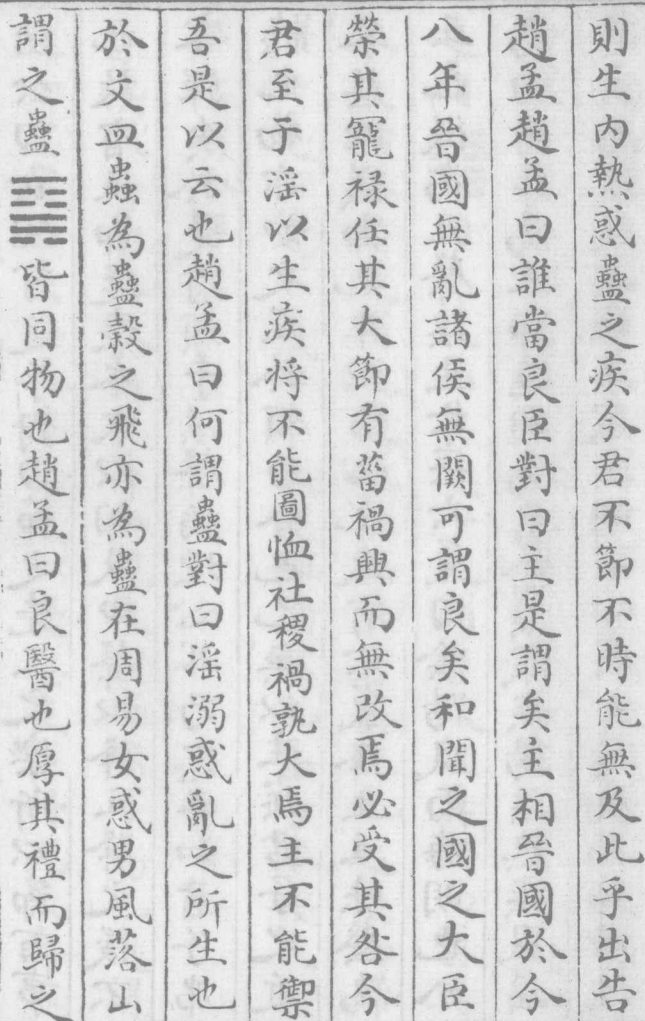 則生內熱惑蠱之疾今君不節不時能無及此乎出告
趙孟趙孟曰誰當良臣對曰主是謂矣主相晉國於今
八年晉國無亂諸侯無闕可謂良矣和聞之國之大臣
榮其寵祿任其大節有菑禍興而無改焉必受其咎今
君至于淫以生疾将不能圖恤社稷禍孰大焉主不能禦
吾是以云也趙孟曰何謂蠱對曰淫溺惑亂之所生也
於文皿蟲為蠱糓之飛亦為蠱在周易女惑男風落山
謂之蠱䷑皆同物也趙孟曰良醫也厚其禮而歸之